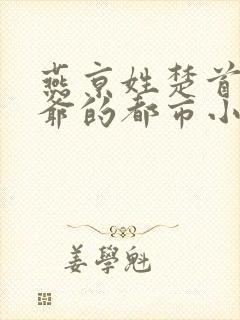 燕京姓楚首
爷的都市小
姜學魁